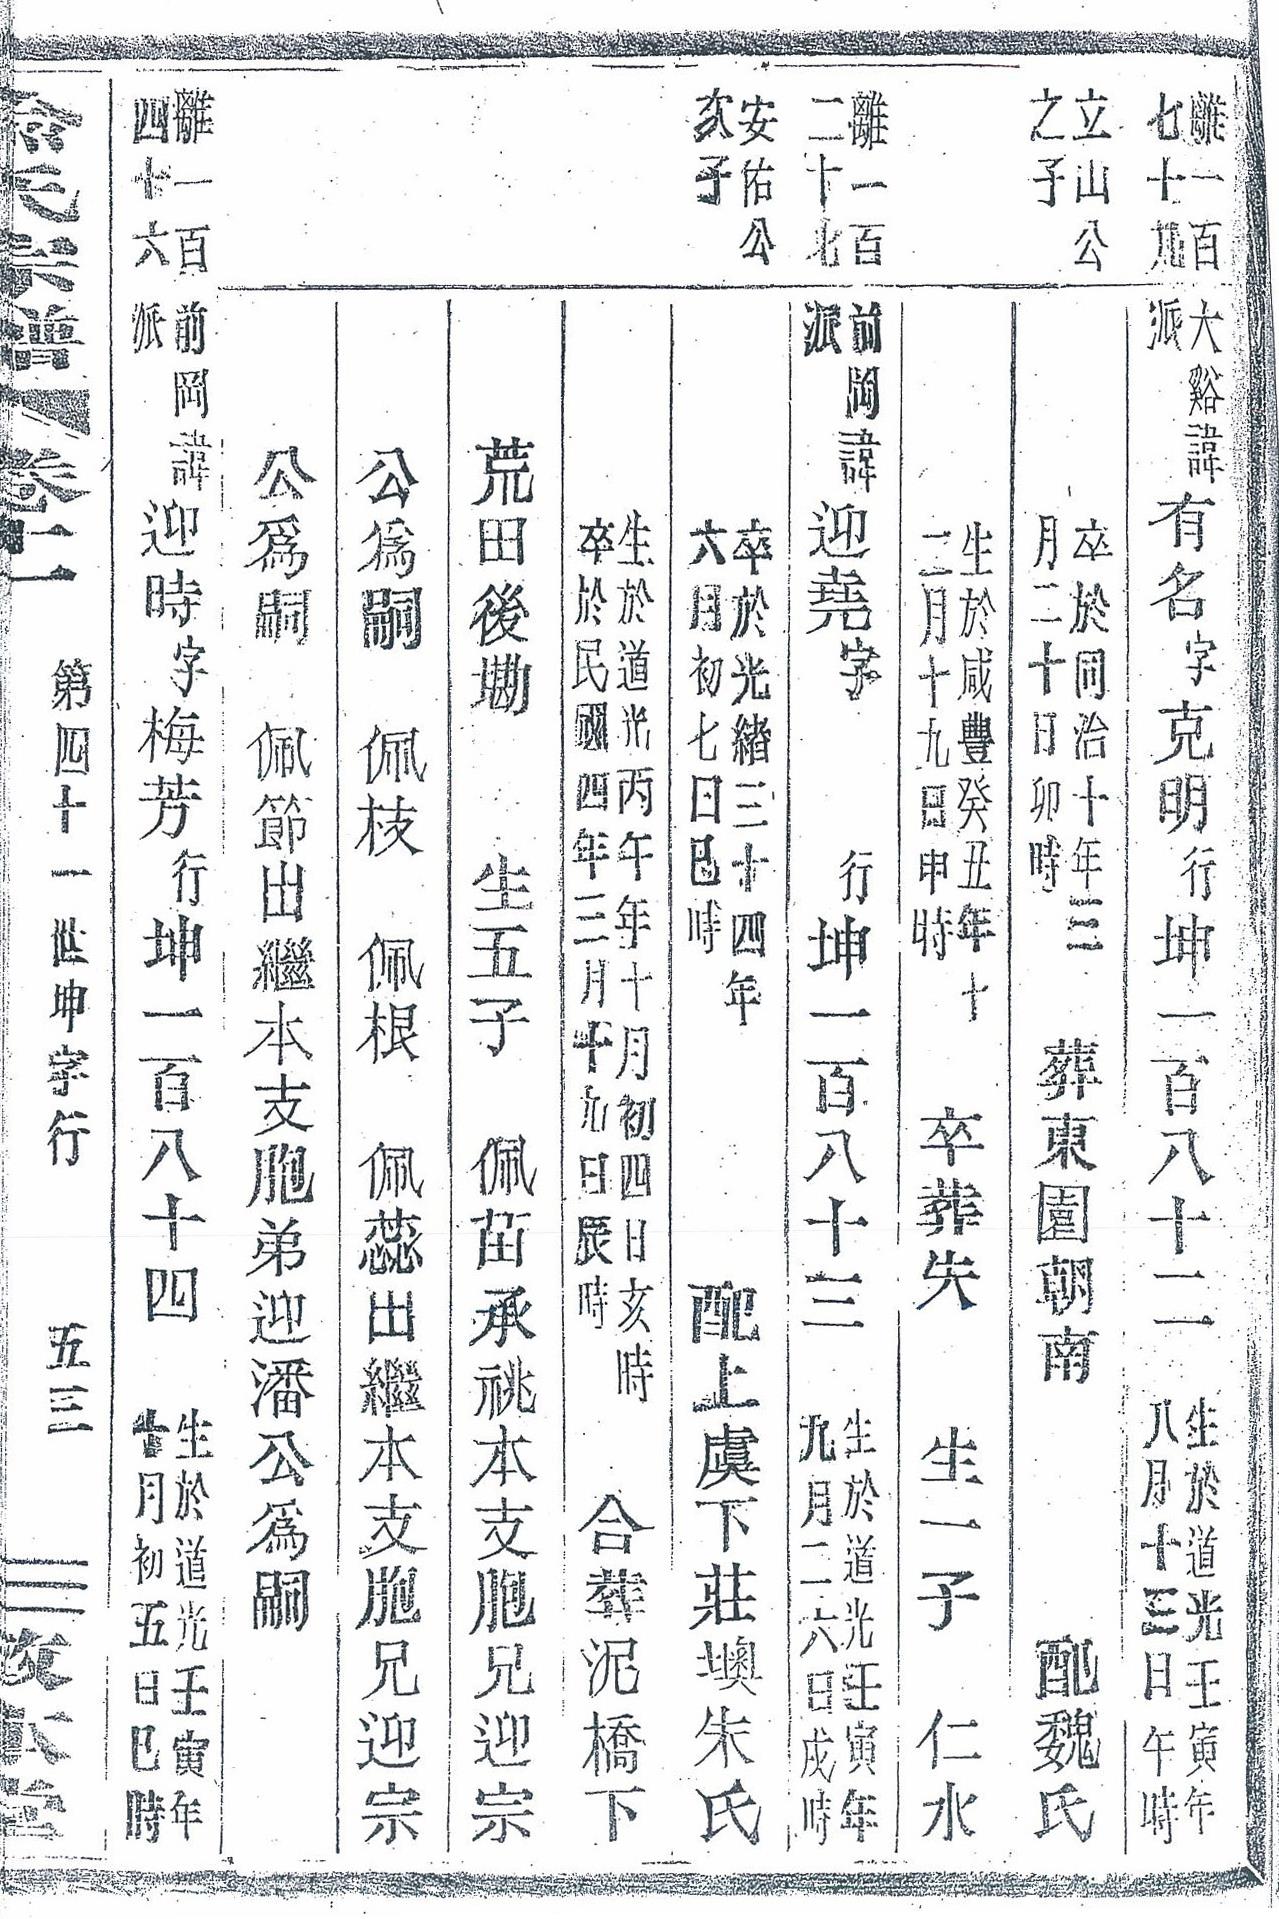 離一百
七十九
大谿諱
派
有名字克明行坤一百八十二
生於道光壬寅年
八月十三日午時
立山公
之子
卒於同治十年三
月二十日卯時
葬東園朝南
配魏氏
生於咸豐癸丑年十
二月十九日申時
卒葬失
生一子
仁水
離一百
二十七
前岡諱
派
迎堯字
行坤一百八十三
生於道光壬寅年
九月二六日戌時
安佑公
次子
卒於光緒三十四年
六月初七日巳時
配上虞下莊墺朱氏
生於道光丙午年十月初四日亥時
卒於民國四年三月十九日辰時
合葬泥橋下
荒田後墈 生五子 佩苗承祧本支胞兄迎宗
公爲嗣 佩枝 佩根 佩蕊出繼本支胞兄迎宗
公爲嗣 佩節出繼本支胞弟迎潘公爲嗣
離一百
四十六
前岡諱
派
迎時字梅芳行坤一百八十四
生於道光壬寅年
十月初五日巳時
氏宗譜 卷十一 第四十一世坤字行 五三